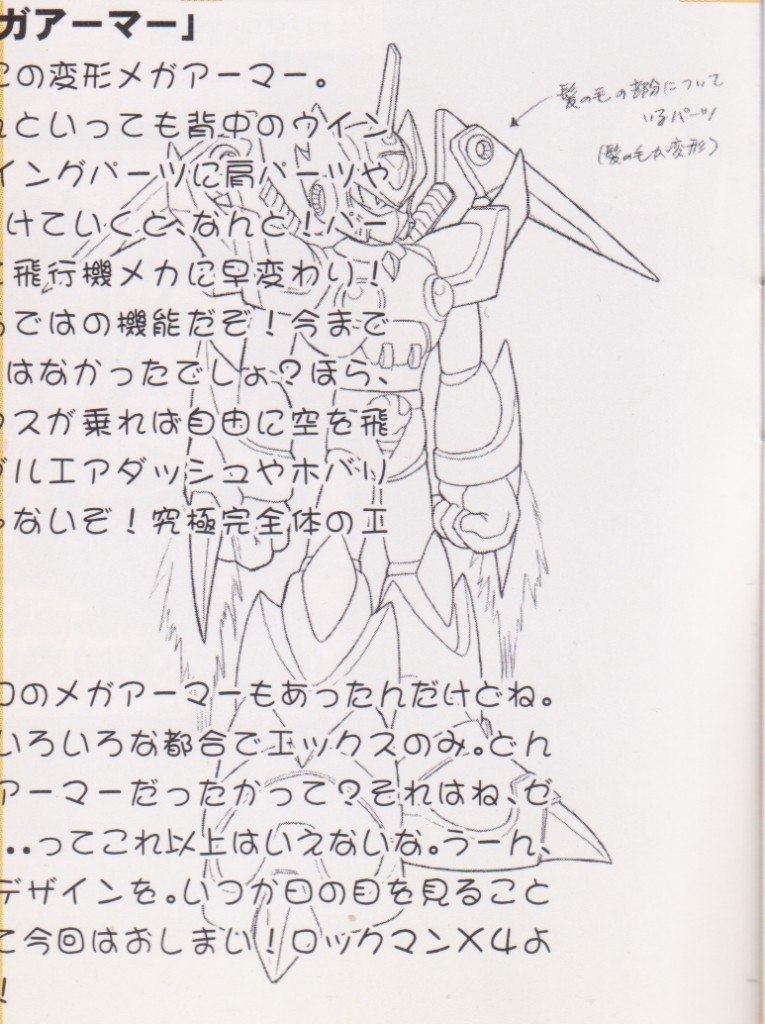 ガアーマー」
この変形メガアーマー。
んといっても背中のウイン
イングパーツに肩パーツや
けていくと、なんと!バー
に飛行機メカに早変わり!
らではの機能だぞ!今まで
はなかったでしょ?ほら、
クスが乗れば自由に空を飛
ブルエアダッシュやホバリ
ゃないぞ!究極完全体のエ
髪の毛の部分について
いるパーツ
(髪の毛が変形)
ロのメガアーマーもあったんだけどね。
いろいろな都合でエックスのみ。どん
アーマーだったかって?それはね、ゼ
..ってこれ以上はいえないな。うーん、
デザインを。いつか日の目を見ること
て今回はおしまい!ロックマンX4よ
!